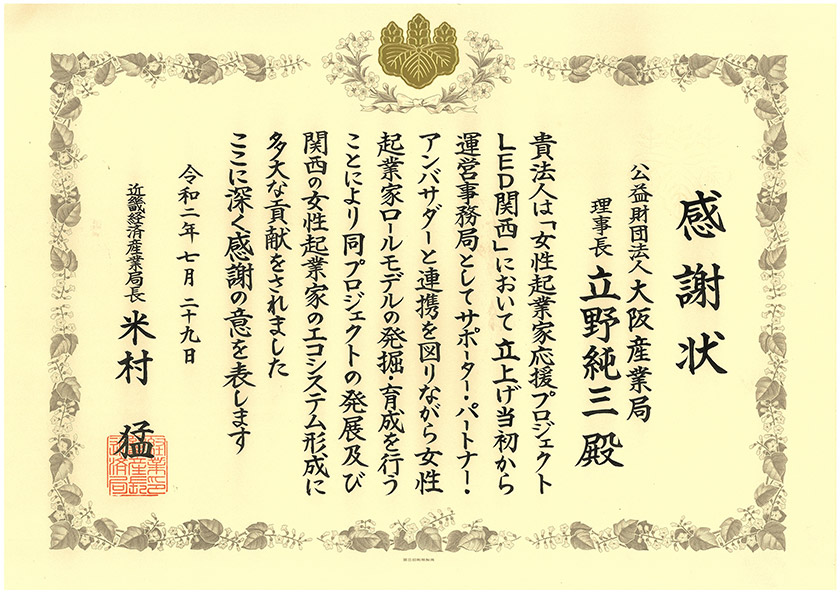 感謝状
公益財団法人 大阪産業局
理事長 立野純三 殿
貴法人は「女性起業家応援プロジェクト
LED関西」において立上げ当初から
運営事務局としてサポーター・パートナー・
アンバサダーと連携を図りながら女性
起業家ロールモデルの発掘・育成を行う
ことにより同プロジェクトの発展及び
関西の女性起業家のエコシステム形成に
多大な貢献をされました
ここに深く感謝の意を表します
令和二年七月二十九日
近畿経済産業局長 米村 猛